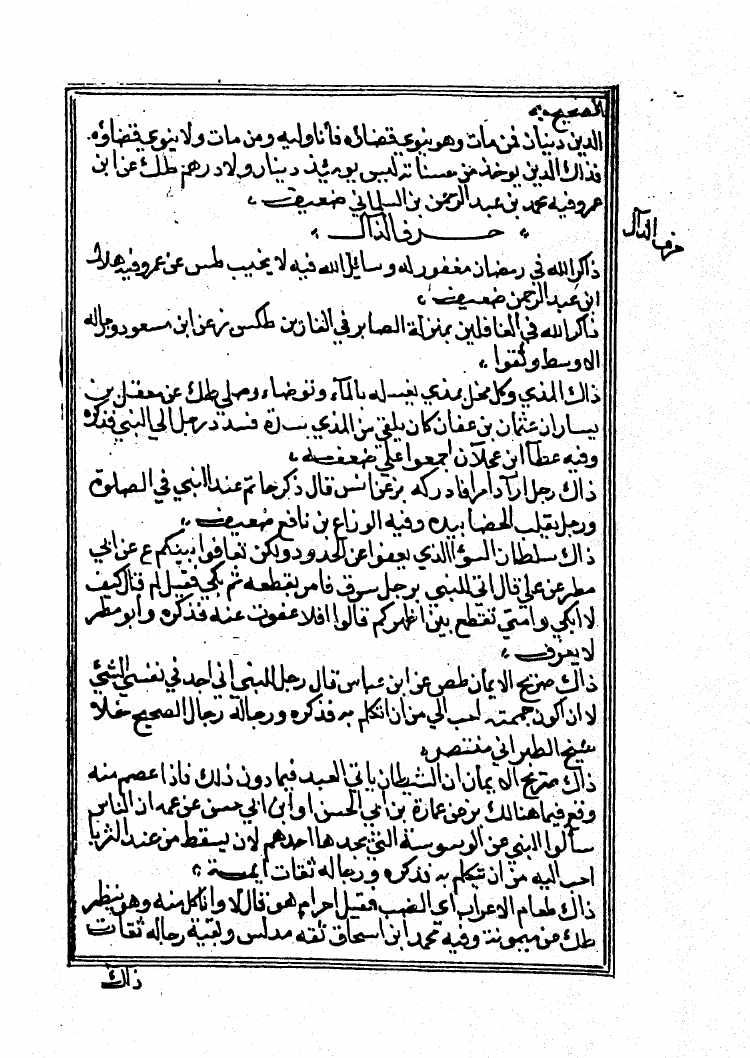 الصحيح
الدين دينان فمن مات وهو ينوي قضائه فأنا وليه ومن مات ولا ينوي قضاؤه
فذاك الذين يوخذ من حسناته ليس يومئذ دينار ولا درهم طك عن ابن
عمر وفيه محمد بن عبد الرحمن بن السلماني ضعيف
حرف الذال
حرف الذال
ذاكر الله في رمضان مغفور له وسائل الله فيه لا يخيب طس عن عمر وفيه هلال
ابن عبد الرحمن ضعيف
ذاكر الله في الغافلين بمنزلة الصابر في الفازين طكس ز عن ابن مسعود ورجاله
الاوسط وثقوا
ذاك المذي وكل فحل يمذي يغسله بالمآء وتوضاء وصلي طك عن معقل بن
يسار ان عثمان بن عفان كان يلقي من المذي شدة فسدد رجل الي النبي فذكره
وفيه عطآ ابن عجلان اجمعوا علي ضعفه
ذاك رجل اراد امرا فادركه بز عن انس قال ذكر حاتم عند النبي في الصلوة
ورجل يقلب الحصا بيده وفيه الوزاع بن نافع ضعيف
ذاك سلطان السوء الذي يعفوا عن الحدود ولكن تعافوا بينكم ع عن ابي
مطر عن علي قال اتي للنبي برجل سرق فامر بقطعه ثم بكي فقيل لم قال كيف
لا ابكي وامتي تقطع بين اظهركم قالوا افلا عفوت عنه فذكره وابو مطر
لا يعرف
ذاك صريح الايمان طص عن ابن عباس قال رجل للنبي اني اجد في نفسي الشئ
لان اكون حممة احب الي من ان اتكلم به فذكره ورجاله رجال الصحيح خلا
شيخ الطبراني منتصر
ذاك صريح الايمان ان الشيطان ياتي العبد فيما دون ذلك فاذا عصم منه
وقع فيما هنالك بز عن عمارة بن ابي الحسن او ابن ابي حسن عن عمه ان الناس
سألوا النبي عن الوسوسة التي يجدها احدهم لان يسقط من عند الثريا
احب اليه من ان يتكلم به فذكره ورجاله ثقات ايمة
ذاك طعام الاعراب اي الضب فقيل احرام هو قال لا وانا كل منه وهو ينظر
طك عن ميمونة وفيه محمد ابن اسحاق ثقه مدلس وبقية رجاله ثقات
ذاك